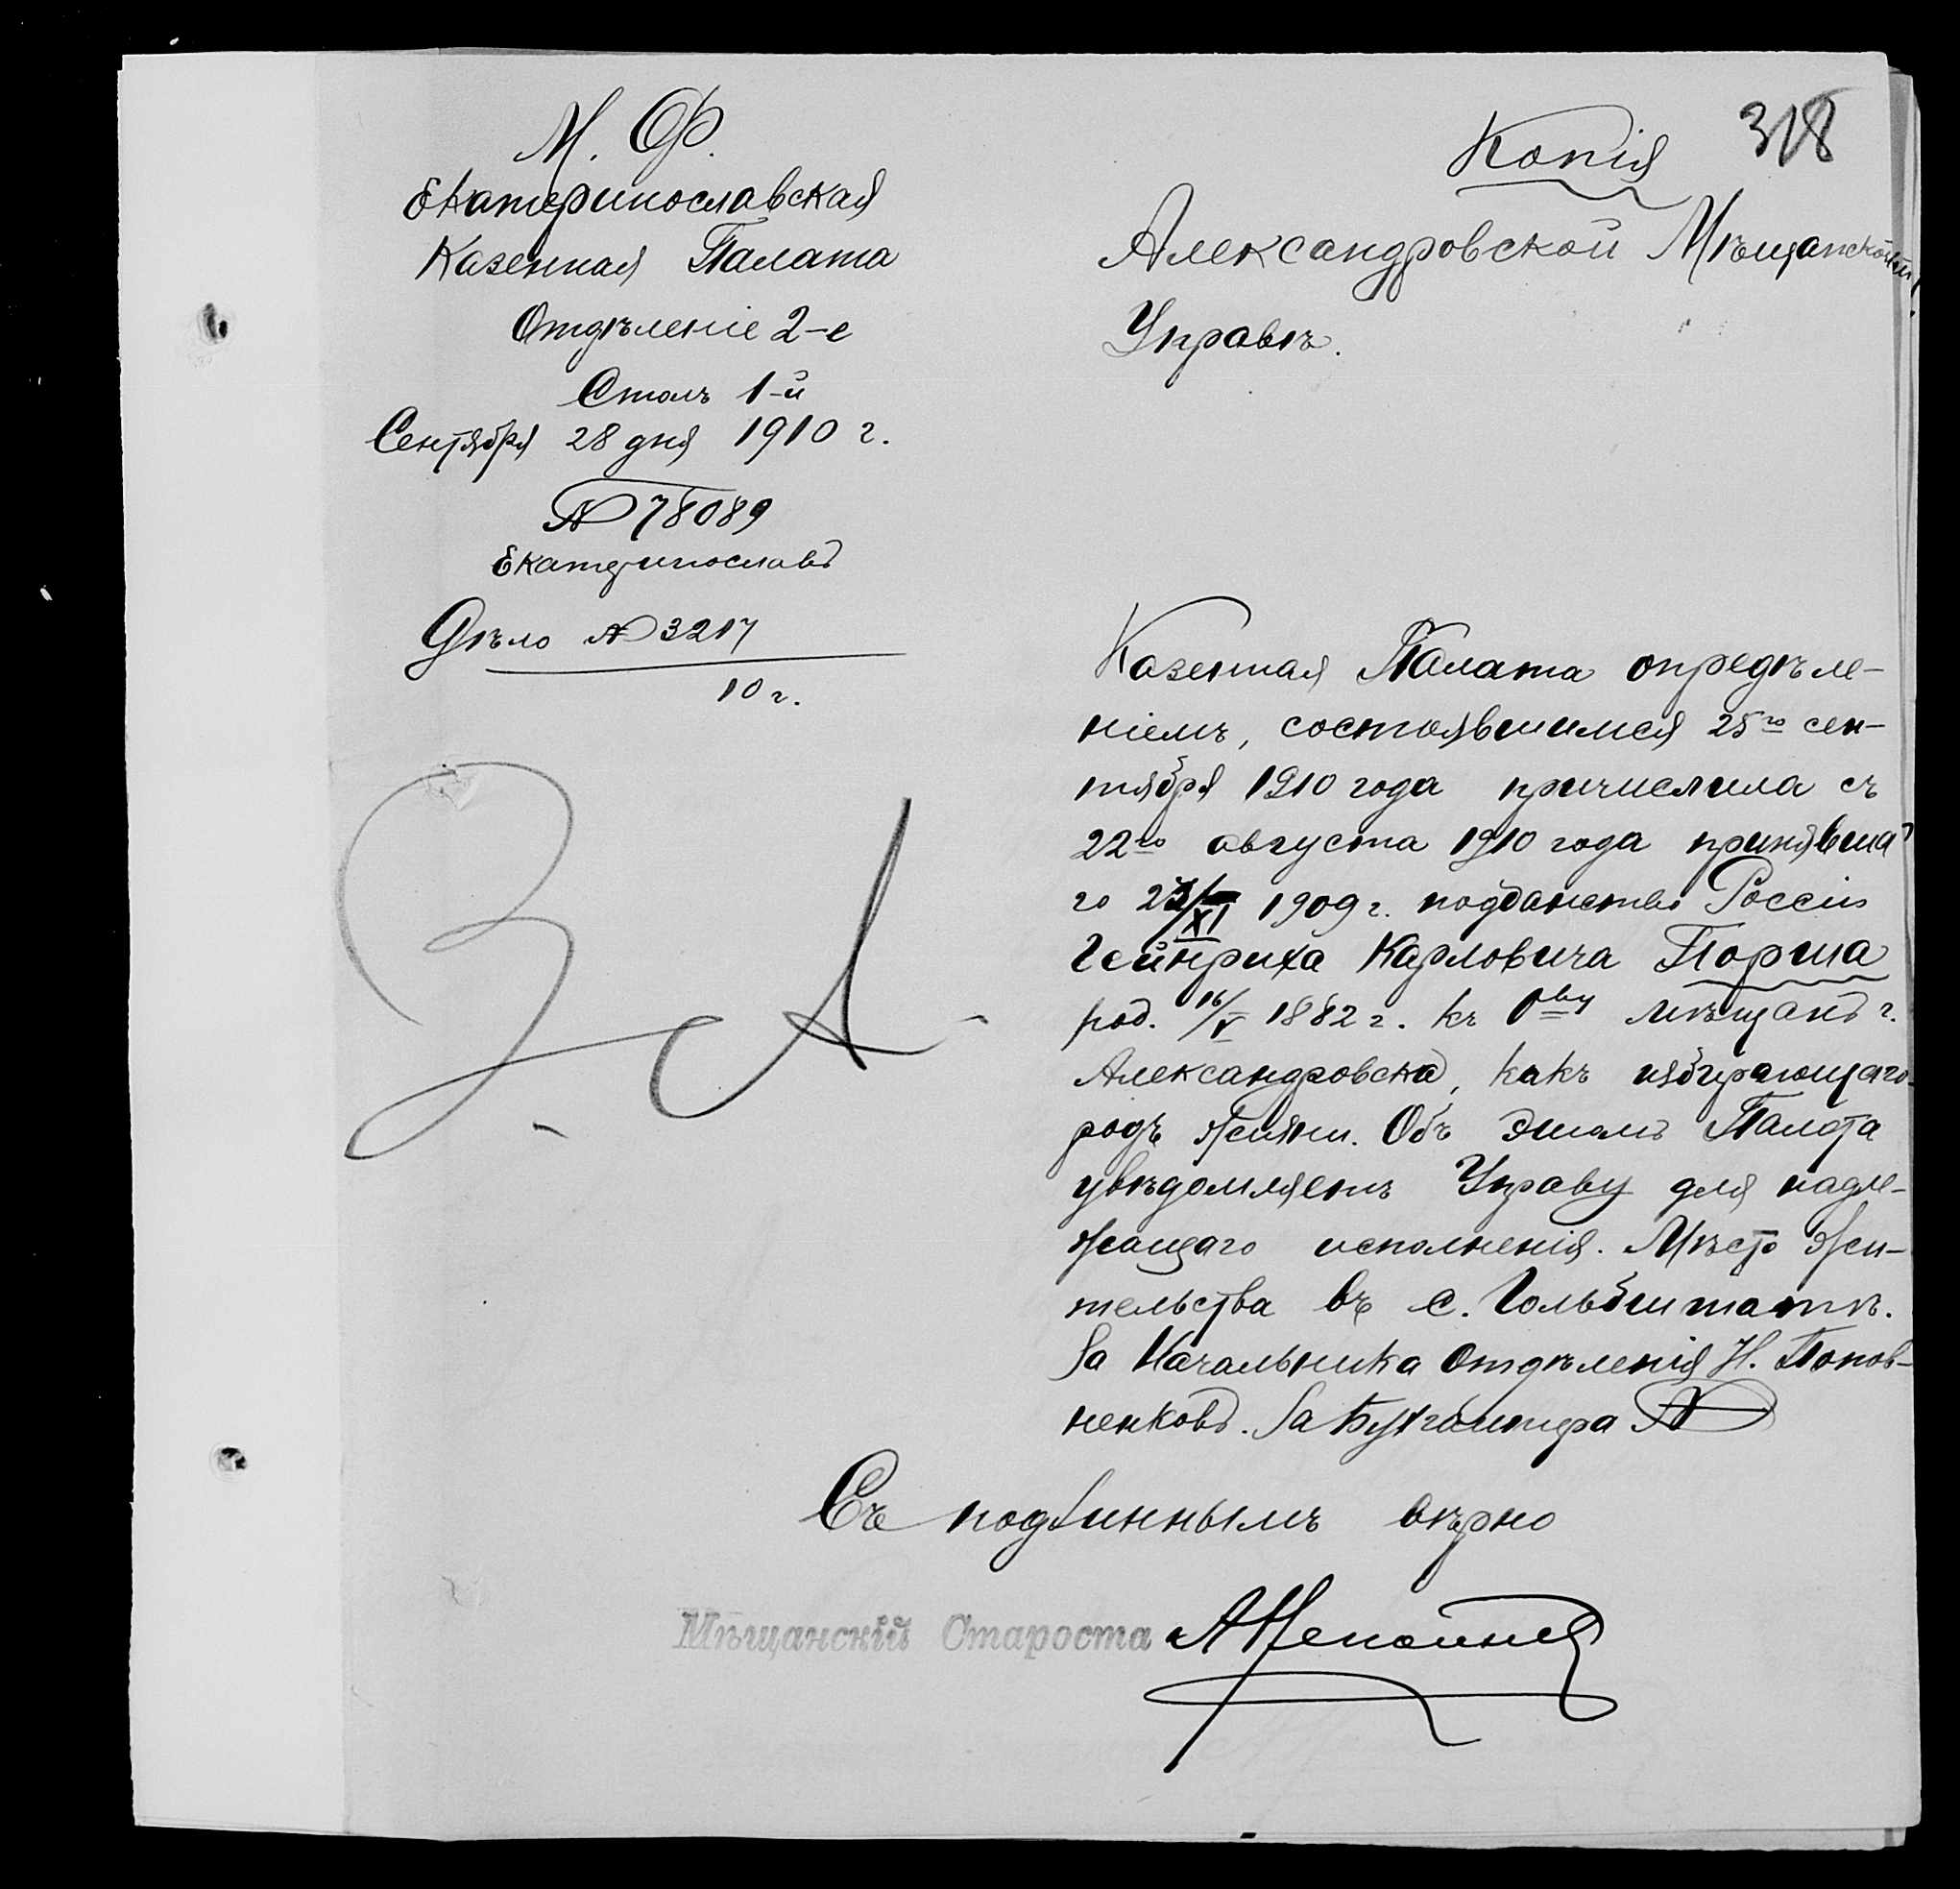 318
Копія
М. Ф.
Екатеринославская
Казенная Палата
Отдѣленіе 2-е
Столъ 1-й
Сентября 28 дня 1910 г.
№ 78089
Екатеринославъ
Дѣло № 3217
10 г.
Александровской Мѣщанской
Управѣ.
Казенная Палата опредѣле-
ніемъ, состоявшимся 25го сен-
тября 1910 года причислила съ
22го августа 1910 года принявша
го XI 1909 г. подданство Россіи
Гейнриха Карловича Порша
род. 16/V 1882 г. къ о-ву мѣщанъ г.
Александровска, какъ избирающаго
родъ жизни. Объ этомъ Палата
увѣдомляетъ Управу для надле-
жащаго исполненія. Мѣсто жи-
тельства въ с. Гольбштатѣ.
За Начальника Отдѣленія Н. Попов-
ненковъ. За Бухгалтера
Съ подлиннымъ вѣрно
Мѣщанскій Староста
З. А.